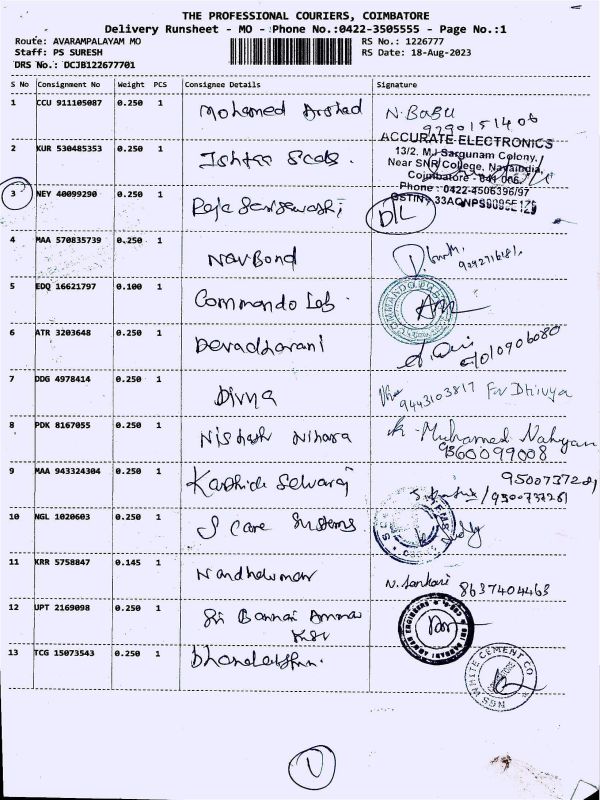 THE PROFESSIONAL COURIERS, COIMBATORE
Delivery Runsheet - MO - Phone No.:0422-3505555 - Page No.:1
Route: AVARAMPALAYAM MO
RS No.: 1226777
Staff: PS SURESH
RS Date: 18-Aug-2023
DRS No.: DCJB122677701
S No Consignment No Weight PCS Consignee Details Signature
1 CCU 911105087 0.250 1 Mohamed Arshad N. BABU
9290151406
ACCURATE ELECTRONICS
13/2. MJ Sargunam Colony,
2 KUR 530485353 0.250 1
Near SNR College, Navaindia,
Coimbatore - 641 006.
Phone : 0422-4506396/97
3 NEY 40099290 0.250 1 Raja D/L
4 MAA 570835739 0.250 1 NavBond
5 EDQ 16621797 0.100 1 Commando Lab
6 ATR 3203648 0.250 1 Devadharani
7 DDG 4978414 0.250 1 Divya 9443103817 For Dhivya
8 PDK 8167055 0.250 1 Nihara K. Muhamed Nahyan
9360099008
9 MAA 943324304 0.250 1 Karthick Selvaraj 9500737281
10 NGL 1020603 0.250 1 S Care Systems
11 KRR 5758847 0.145 1 Nandhakumar N. Sankari 8637404463
12 UPT 2169098 0.250 1 Sri Bannari Amman
13 TCG 15073543 0.250 1
NGS WHITE CEMENT CO